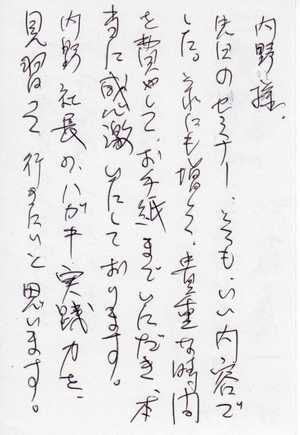 内野様、
先日のセミナー、とても、いい内容で
した。それにも増して、貴重な時間
を費やして、お手紙までいただき、本
当に感激いたしております。
内野社長の、ハガキ実践力を、
見習って行きたいと思います。